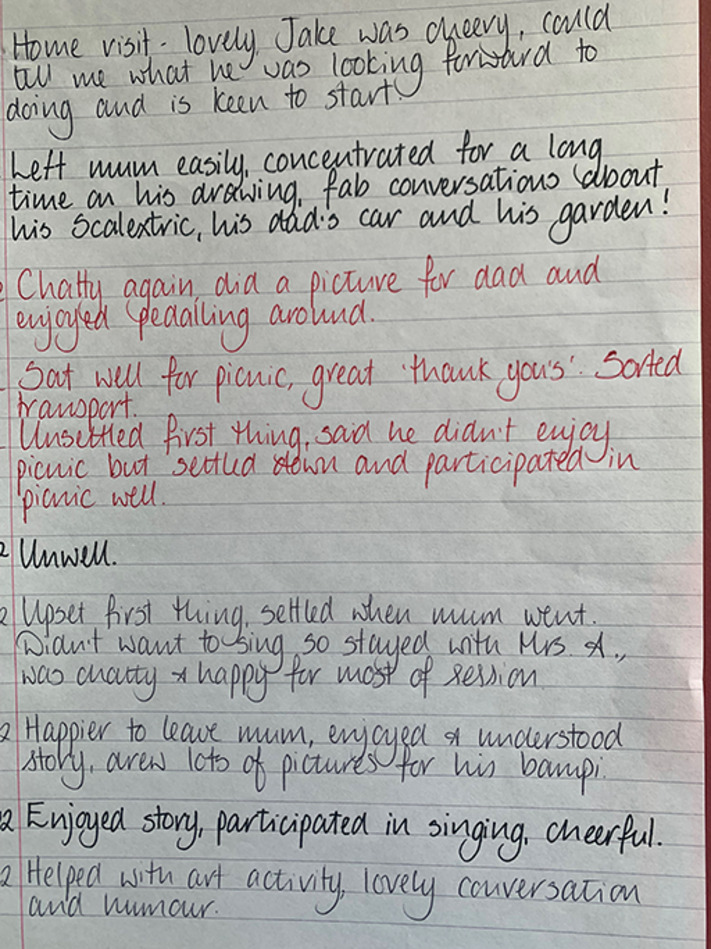 Home visit - lovely, Jake was cheery, could
tell me what he was looking forward to
doing and is keen to start.
Left mum easily, concentrated for a long
time on his drawing, fab conversations about
his Scalextric, his dad's car and his garden!
Chatty again, did a picture for dad and
enjoyed pedalling around.
Sat well for picnic, great 'thank you's'. Sorted
transport.
Unsettled first thing, said he didn't enjoy
picnic but settled down and participated in
picnic well.
2 Unwell.
2 Upset first thing, settled when mum went.
Didn't want to sing so stayed with Mrs. A.,
was chatty & happy for most of session
2 Happier to leave mum, enjoyed & understood
story, drew lots of pictures for his bampi.
2 Enjoyed story, participated in singing, cheerful.
2 Helped with art activity, lovely conversation
and humour.